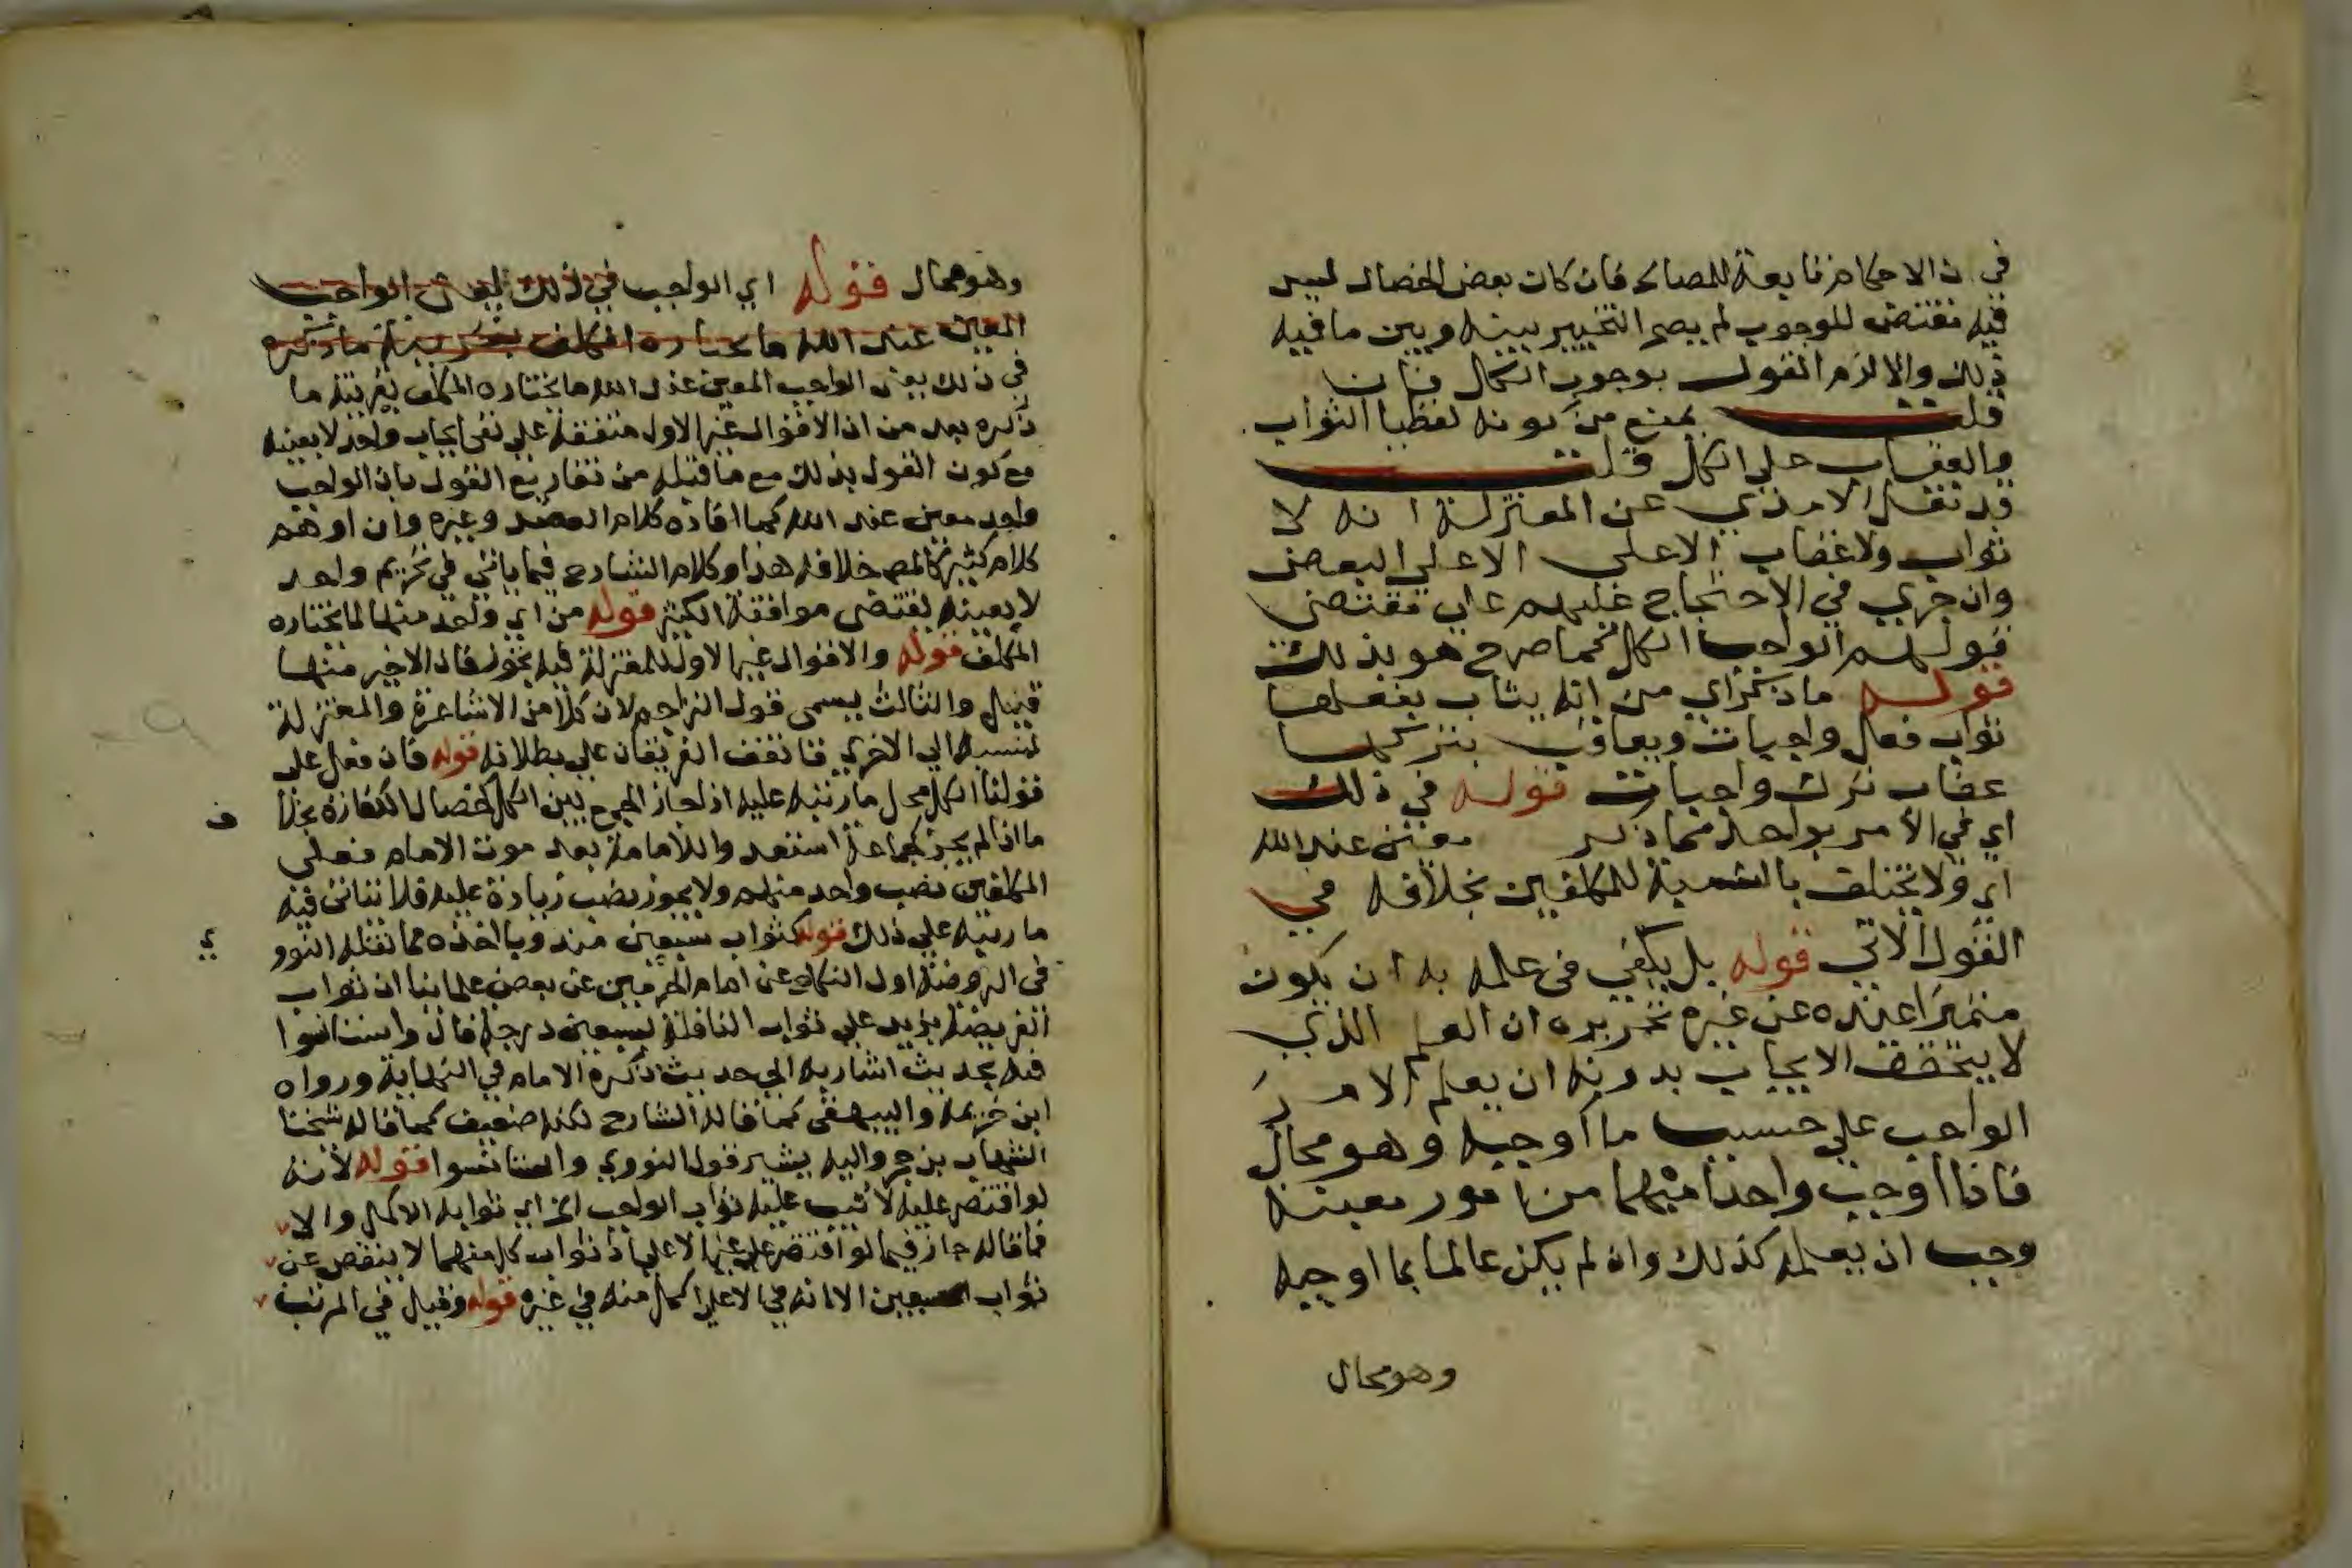 في ان الاحكام تابعة للمصالح فان كان بعض الخصال ليس
فيه مقتض للوجوب لم يصح التخيير بينه وبين ما فيه
ذلك والا لزم القول بوجوب الكل فان
قلت يمنع من كونه لفظيا الثواب
والعقاب على الكل قلت
قد نقل الامدي عن المعتزلة انه لا
ثواب ولا عقاب الاعلى الاعلى البعض
وان جري في الاحتجاج عليهم علي مقتضى
قولهم الواجب الكل كما صرح هو بذلك
قوله ما ذكر اي من انه يثاب بفعلها
ثواب فعل واجبات ويعاقب بتركها
عقاب ترك واجبات قوله في ذلك
اي في الامر بواحد مما ذكر معين عند الله
اي ولا يختلف بالنسبة للمكلفين بخلافه في
القول الاتي قوله بل يكفي في علمه به ان يكون
متميزا عنده عن غيره تحريره ان العلم الذي
لا يتحقق الايجاب بدونه ان يعلم الامر
الواجب علي حسب ما اوجبه وهو محال
فاذا اوجب واحدا مبهما من امور معينة
وجب ان يعلمه كذلك وان لم يكن عالما بما اوجبه
وهو محال
وهو محال قوله اي الواجب في ذلك يعني الواجب
المعين عند الله ما يختاره المكلف بقرينة ما ذكره
في ذلك يعني الواجب المعين عند الله ما يختاره المكلف بقرينة ما
ذكره بعد من ان الاقوال غير الاول متفقة علي نفي ايجاب واحد لا بعينه
مع كون القول بذلك مع ما قبله من تفاريع القول بان الواجب
واحد معين عند الله كما افاده كلام العضد وغيره وان اوهم
كلام كثير كالمص خلافه هذا وكلام الشارح فيما ياتي في تحريم واحد
لا بعينه يقتضي موافقة الكثير قوله من اي واحد منها لما يختاره
المكلف قوله والاقوال غير الاول للمعتزلة فيه تجوز فان الاخير منها
قيل والثالث يسمى قول التراجم لان كلا من الاشاعرة والمعتزلة
تنسبه الي الاخري فاتفق الفريقان علي بطلانه قوله فان فعل علي
قولنا الكل محل ما رتبه عليه اذا جاز الجمع بين الكل كخصال الكفارة بخلا
ف
ما اذا لم يجز كجماعة استعدوا للامامة بعد موت الامام فعلي
المكلفين نصب واحد منهم ولا يجوز نصب زيادة عليه فلا يتاتى فيه
ما رتبه علي ذلك قوله كثواب سبعين مندوبا اخذه مما نقله النوو
ي
في الروضة اول النكاح عن امام الحرمين عن بعض علمائنا ان ثواب
الفريضة يزيد علي ثواب النافلة بسبعين درجة قال واستانسوا
فيه بحديث اشار به الي حديث ذكره الامام في النهاية ورواه
ابن خزيمة والبيهقي كما قاله الشارح لكنه ضعيف كما قاله شيخنا
الشهاب بن حجر واليه يشير قول النووي واستانسوا قوله لانه
لو اقتصر عليه لاثيب عليه ثواب الواجب الخ اي ثوابه الاكمل والا
فما قاله جاز فيما لو اقتصر علي غير الاعلي اذ ثواب كل منهما لا ينقص عن
ثواب السبعين الا انه في الاعلي اكمل منه في غيره قوله وقيل في المرتب